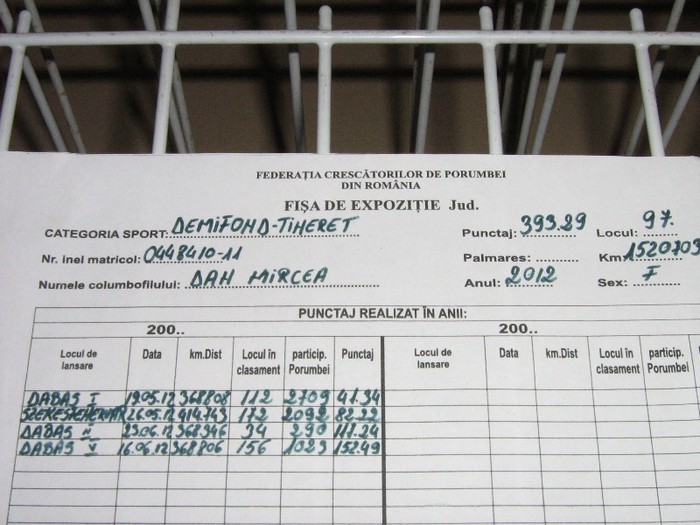 FEDERAȚIA CRESCĂTORILOR DE PORUMBEI
DIN ROMÂNIA
FIȘA DE EXPOZIȚIE Jud.
CATEGORIA SPORT: DEMIFOND-TINERET Punctaj: 393.29 Locul: 97.
Nr. inel matricol: 0448410-11 Palmares: Km 1520703
Numele columbofilului: DAN MIRCEA Anul: 2012 Sex: F
PUNCTAJ REALIZAT ÎN ANII:
200.. 200..
Locul de lansare Data km.Dist Locul în clasament particip. Porumbei Punctaj Locul de lansare Data km.Dist Locul în clasament particip. Porumbei
DABAS I 19.05.12 368808 112 2709 41.34
SZEKESFEHERVAR 26.05.12 414.743 172 2092 82.22
DABAS 23.06.12 368346 34 290 117.24
DABAS V 16.06.12 368806 156 1023 152.49